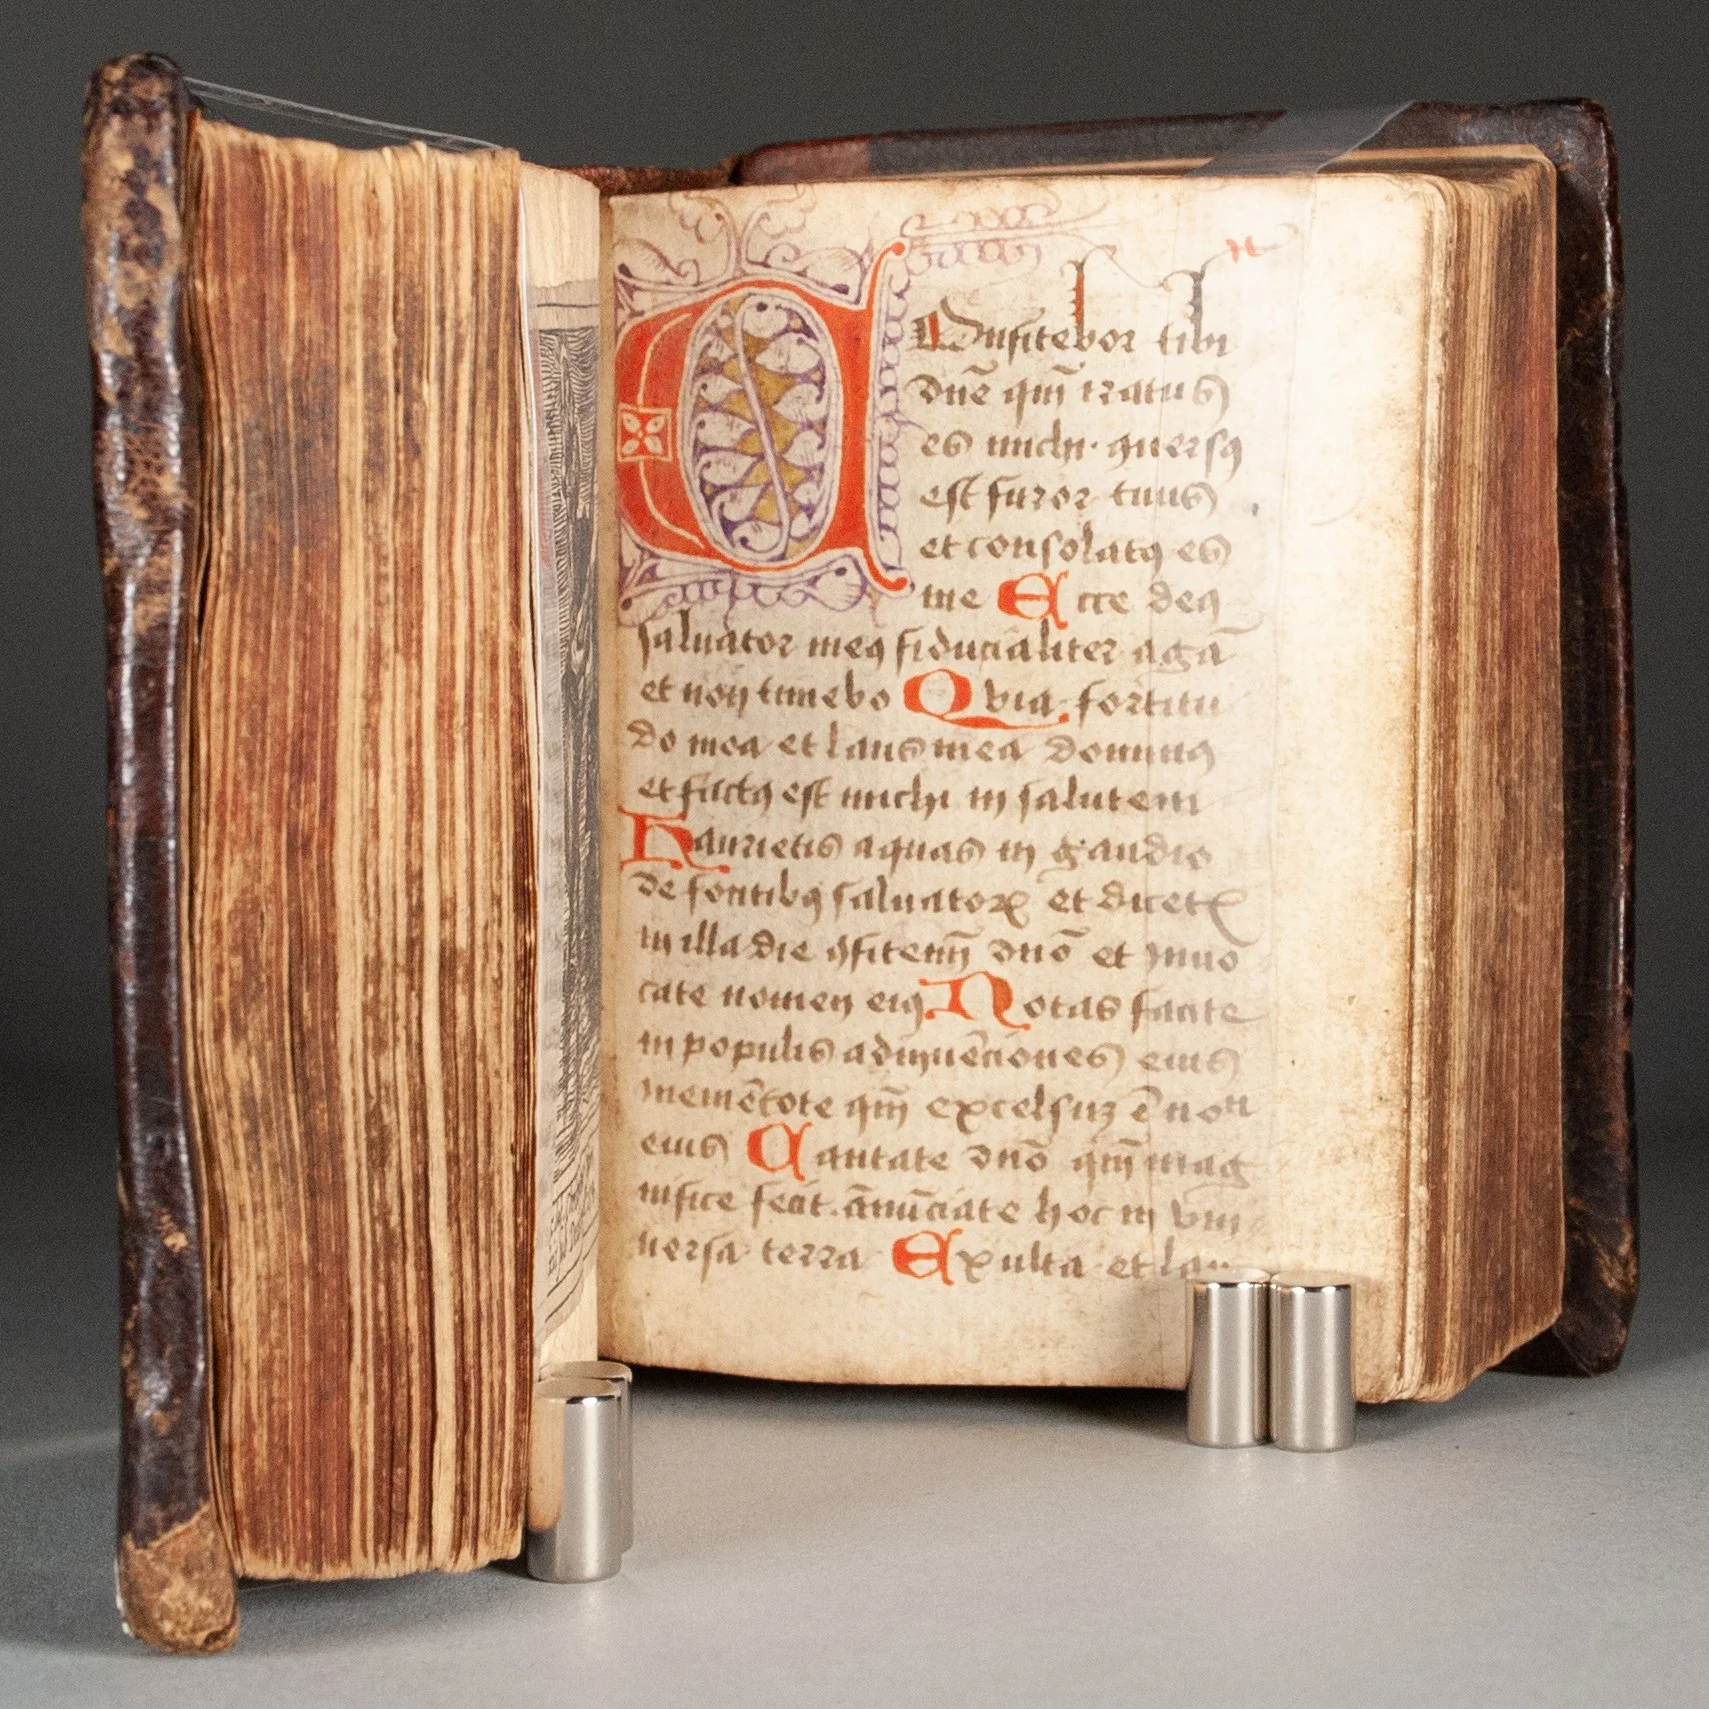 COnfitebor tibi
dn̄e qm̄ iratus
es michi · ꝯuersꝰ
est furor tuus
et consolatꝰ es
me Ecce deꝰ
saluator meꝰ fiducialiter agā
et non timebo Quia fortitu
do mea et laus mea dominꝰ
et factꝰ est michi in salutem
Haurietis aquas in gaudio
de fontibꝰ saluatorꝭ et dicetꝭ
in illa die ꝯfitemī dn̄o et inuo
cate nomen eiꝰ Notas facite
in populis adinuēciones eius
memētote qm̄ excelsuꝫ ē nom̄
eius Cantate dn̄o qm̄ mag
nifice fecit · ānūciate hoc in vni
uersa terra Exulta et lau